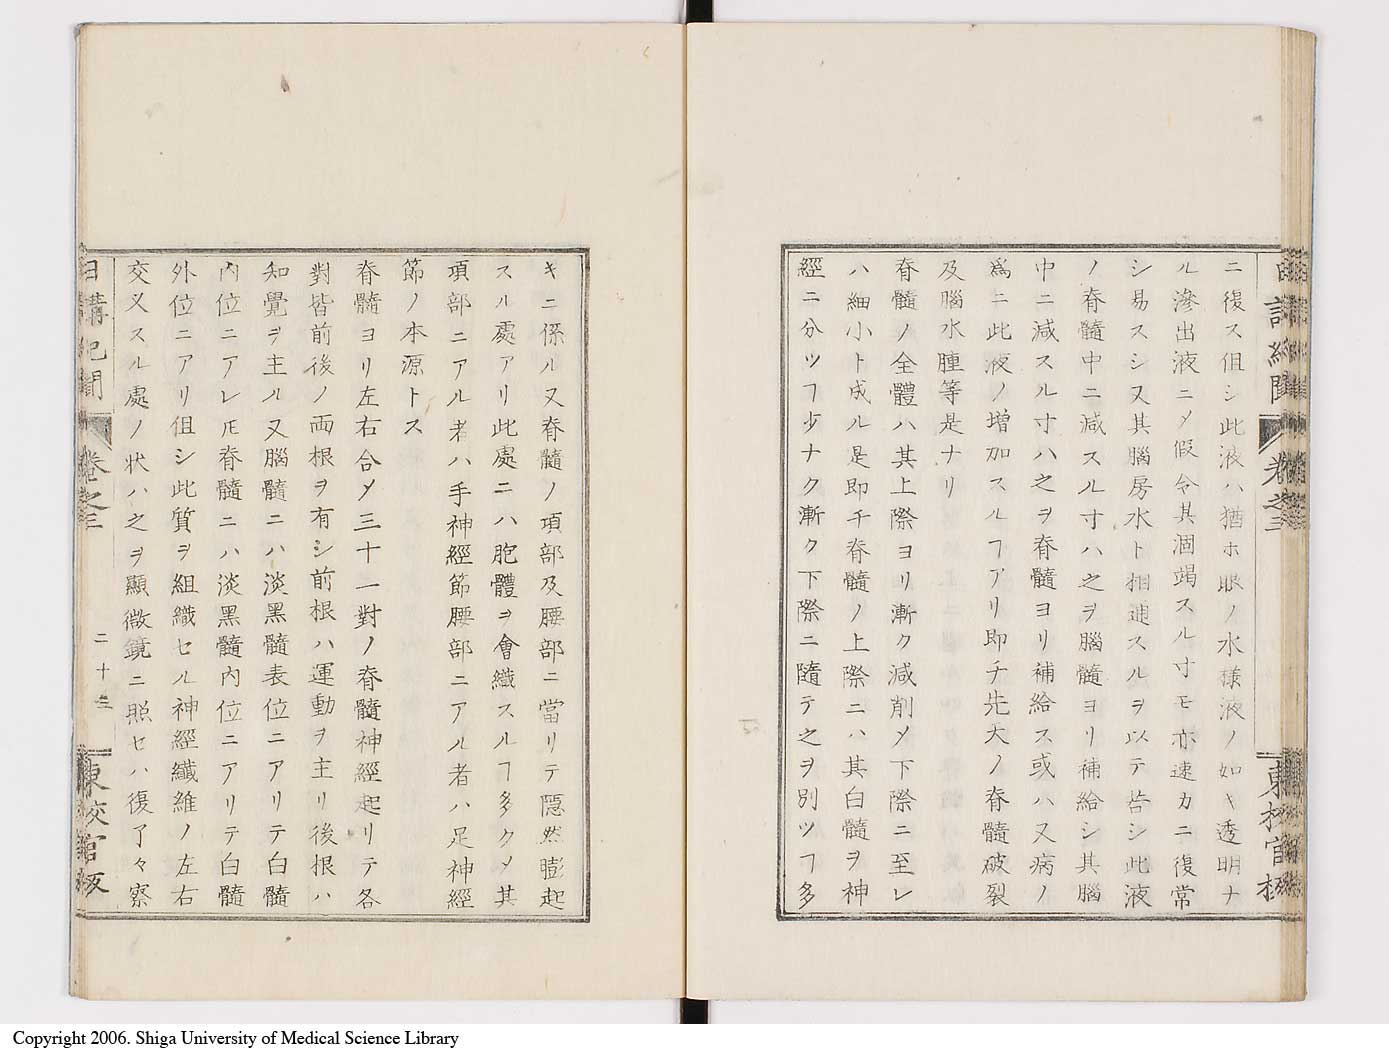 日講紀聞 卷之三 東校官板
ニ復ス但シ此液ハ猶ホ眼ノ水様液ノ如キ透明ナ
ル滲出液ニメ假令其涸竭スル寸モ亦速カニ復常
シ易スシ又其腦房水ト相通スルヲ以テ若シ此液
ノ脊髓中ニ減スル寸ハ之ヲ腦髓ヨリ補給シ其腦
中ニ減スル寸ハ之ヲ脊髓ヨリ補給ス或ハ又病ノ
爲ニ此液ノ増加スルヿアリ即チ先天ノ脊髓破裂
及腦水腫等是ナリ
脊髓ノ全體ハ其上際ヨリ漸ク減削メ下際ニ至レ
ハ細小ト成ル是即チ脊髓ノ上際ニハ其白髓ヲ神
經ニ分ツヿ少ナク漸ク下際ニ隨テ之ヲ別ツヿ多
キニ係ル又脊髓ノ項部及腰部ニ當リテ隠然膨起
スル處アリ此處ニハ胞體ヲ會織スルヿ多クメ其
項部ニアル者ハ手神經節腰部ニアル者ハ足神經
節ノ本源トス
脊髓ヨリ左右合メ三十一對ノ脊髓神經起リテ各
對皆前後ノ両根ヲ有シ前根ハ運動ヲ主リ後根ハ
知覺ヲ主ル又腦髓ニハ淡黑髓表位ニアリテ白髓
内位ニアレ𪜈脊髓ニハ淡黑髓内位ニアリテ白髓
外位ニアリ但シ此質ヲ組織セル神經纖維ノ左右
交叉スル處ノ状ハ之ヲ顯微鏡ニ照セハ復了々察
日講紀聞 卷之三 二十三 東校官板
Copyright 2006. Shiga University of Medical Science Library